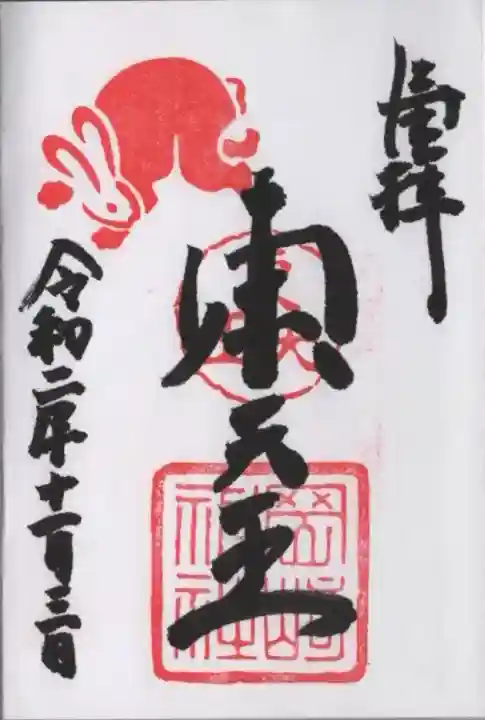 奉拝
東天王
岡崎
神社
令和二年十一月三日